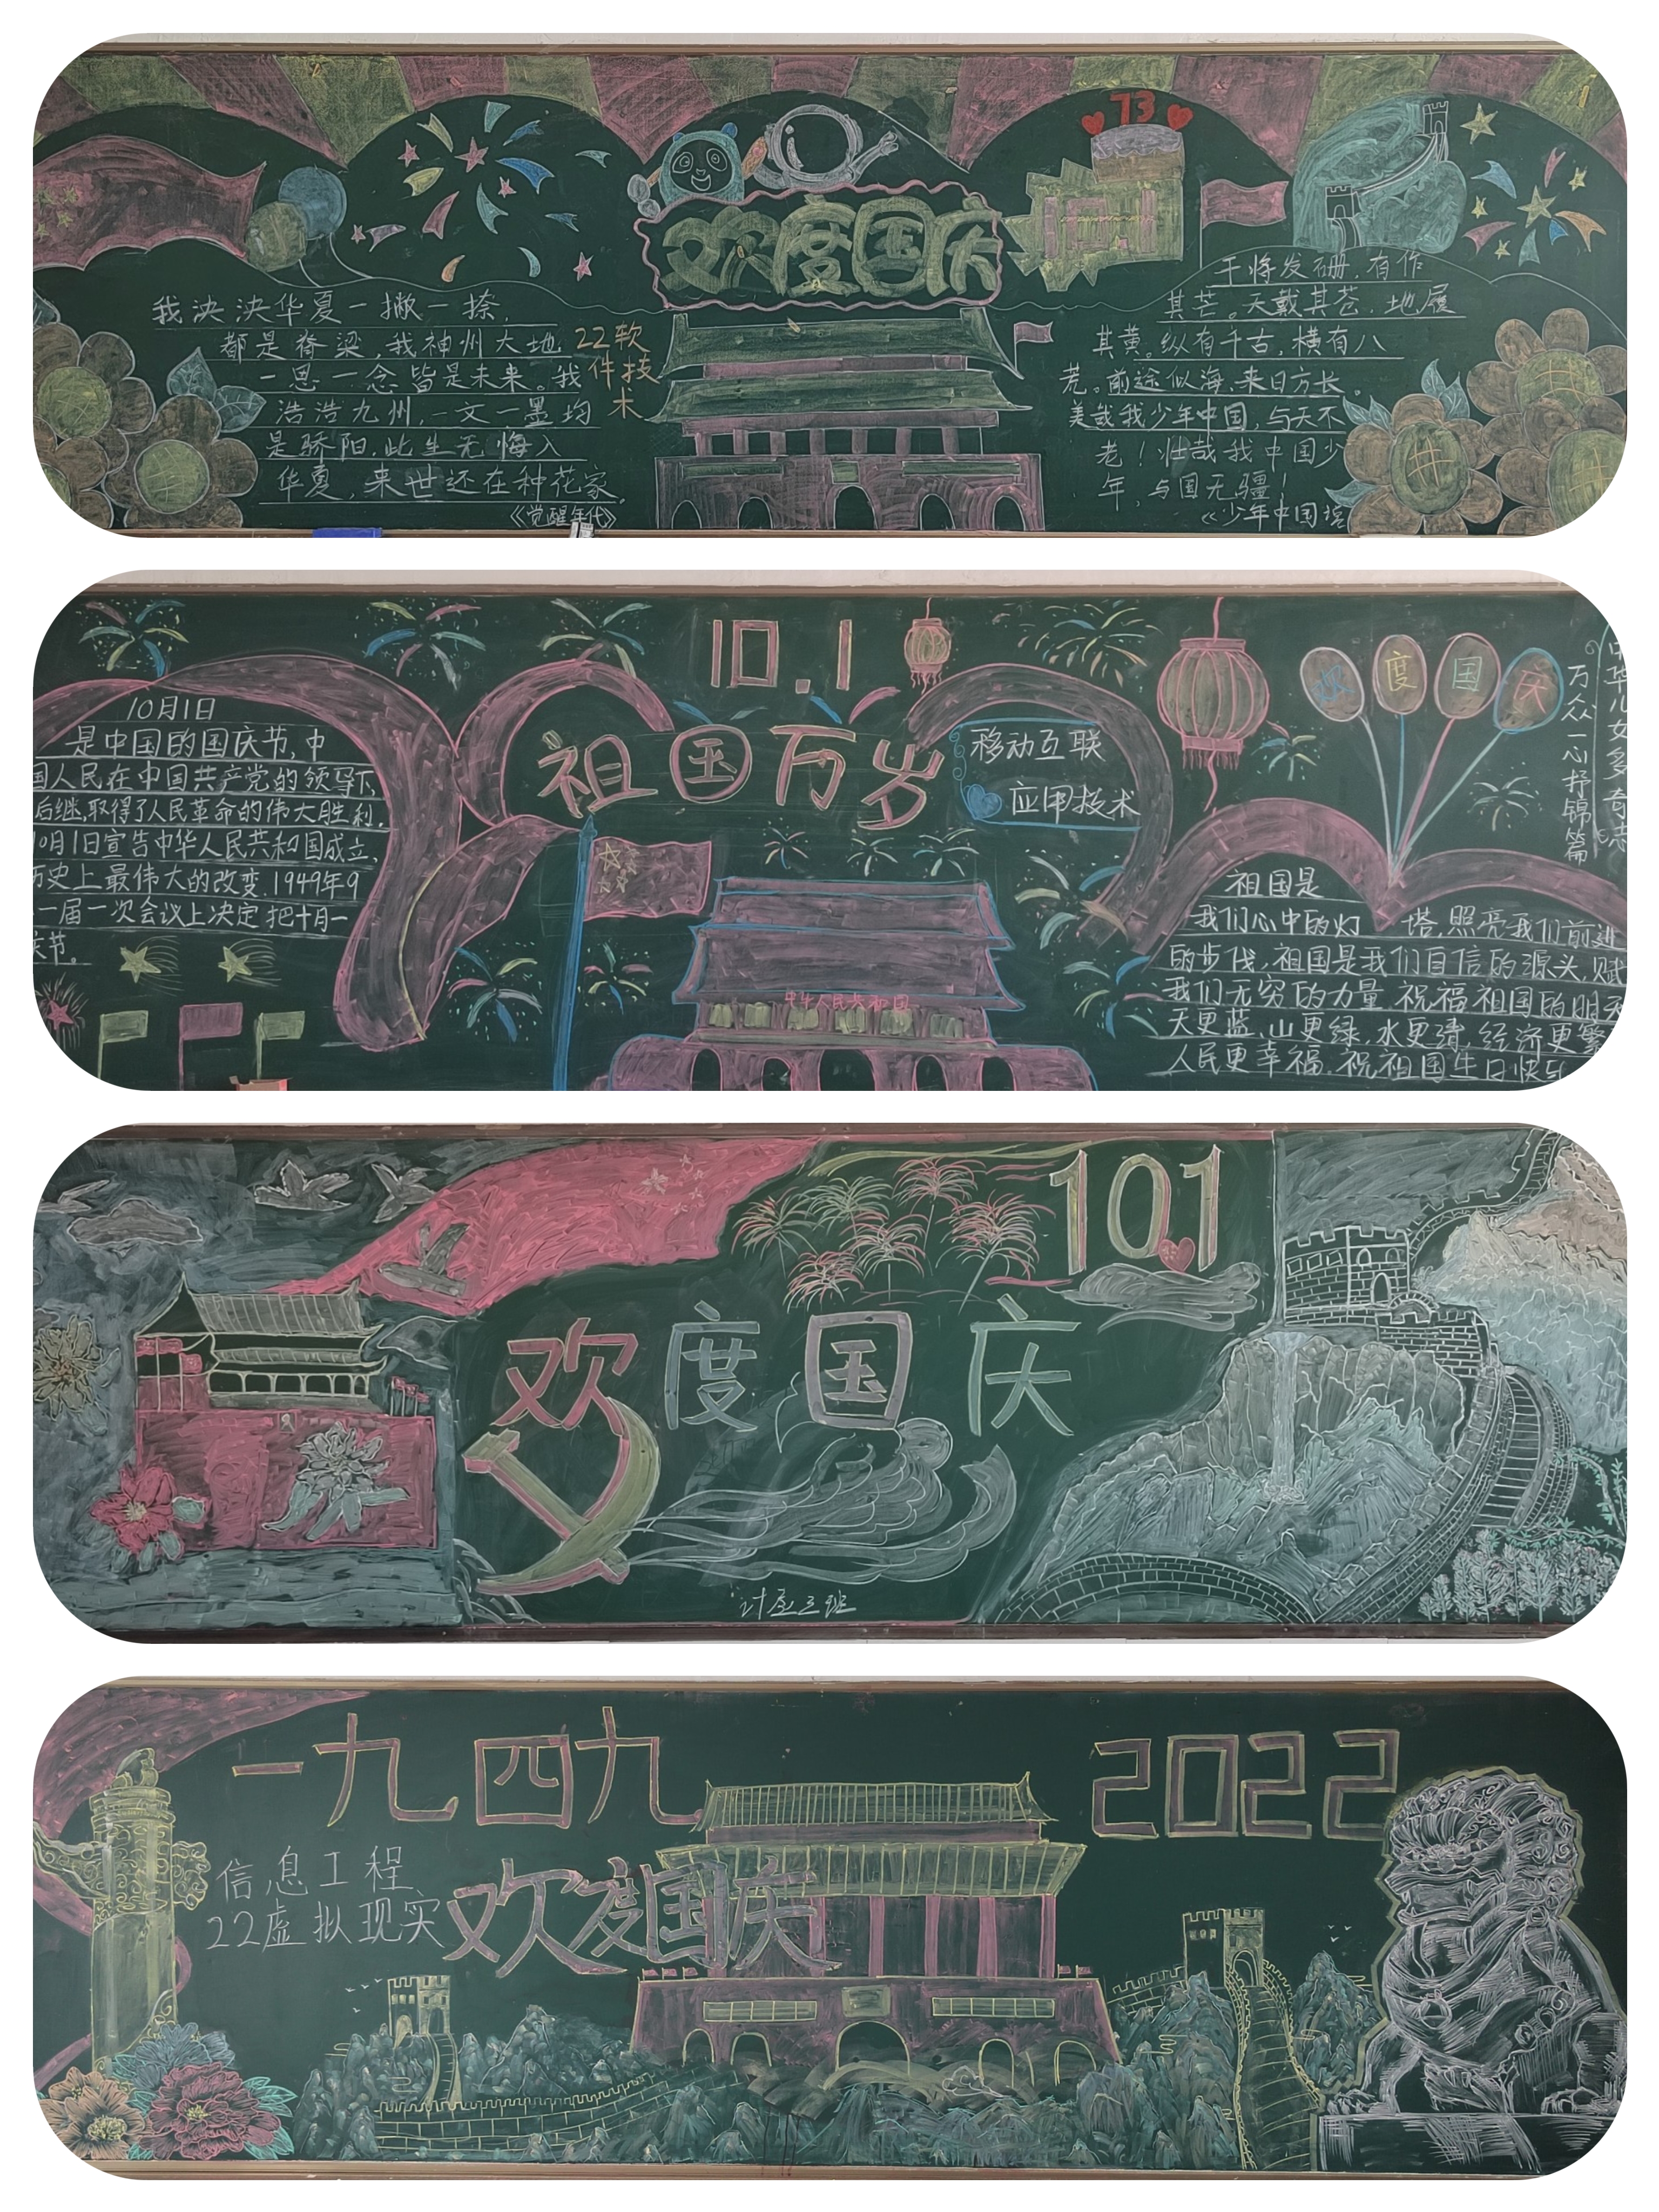 73
欢度国庆
我泱泱华夏一撇一捺,
都是脊梁,我神州大地
一思一念皆是未来。我
浩浩九州,一文一墨均
是骄阳,此生无悔入
华夏,来世还在种花家。
《觉醒年代》
22软
件技
术
干将发硎,有作
其芒。天戴其苍,地履
其黄。纵有千古,横有八
荒。前途似海,来日方长。
美哉我少年中国,与天不
老!壮哉我中国少
年,与国无疆!
《少年中国
10.1
祖国万岁
10月1日
是中国的国庆节,中
国人民在中国共产党的领导下,
后继,取得了人民革命的伟大胜利.
10月1日宣告中华人民共和国成立,
历史上最伟大的改变.1949年9
一届一次会议上决定把十月一
庆节。
移动互联
应用技术
中华人民共和国
欢度国庆
中华儿女多奇志
万众一心抒锦篇
祖国是
我们心中的灯塔,照亮我们前进
的步伐,祖国是我们自信的源头,赋
我们无穷的力量.祝福祖国的明天
天更蓝,山更绿,水更清,经济更繁
人民更幸福.祝祖国生日快乐
101
欢度国庆
计应三班
一九四九
2022
信息工程
22虚拟现实
欢度国庆